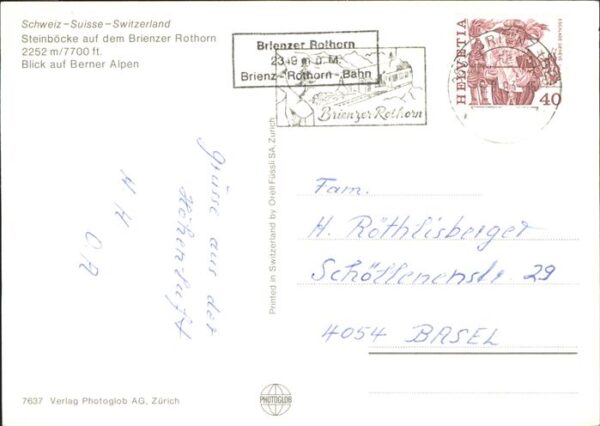 Schweiz – Suisse – Switzerland
Steinböcke auf dem Brienzer Rothorn
2252 m/7700 ft.
Blick auf Berner Alpen
Brienzer Rothorn
2349 m ü. M.
Brienz - Rothorn - Bahn
Brienzer Rothorn
HELVETIA
40
Grüsse aus der
Höhenluft
Printed in Switzerland by Orell Füssli SA, Zürich
Fam.
H. Röthlisberger
Schöllenenstr. 29
4054 BASEL
7637 Verlag Photoglob AG, Zürich
PHOTOGLOB